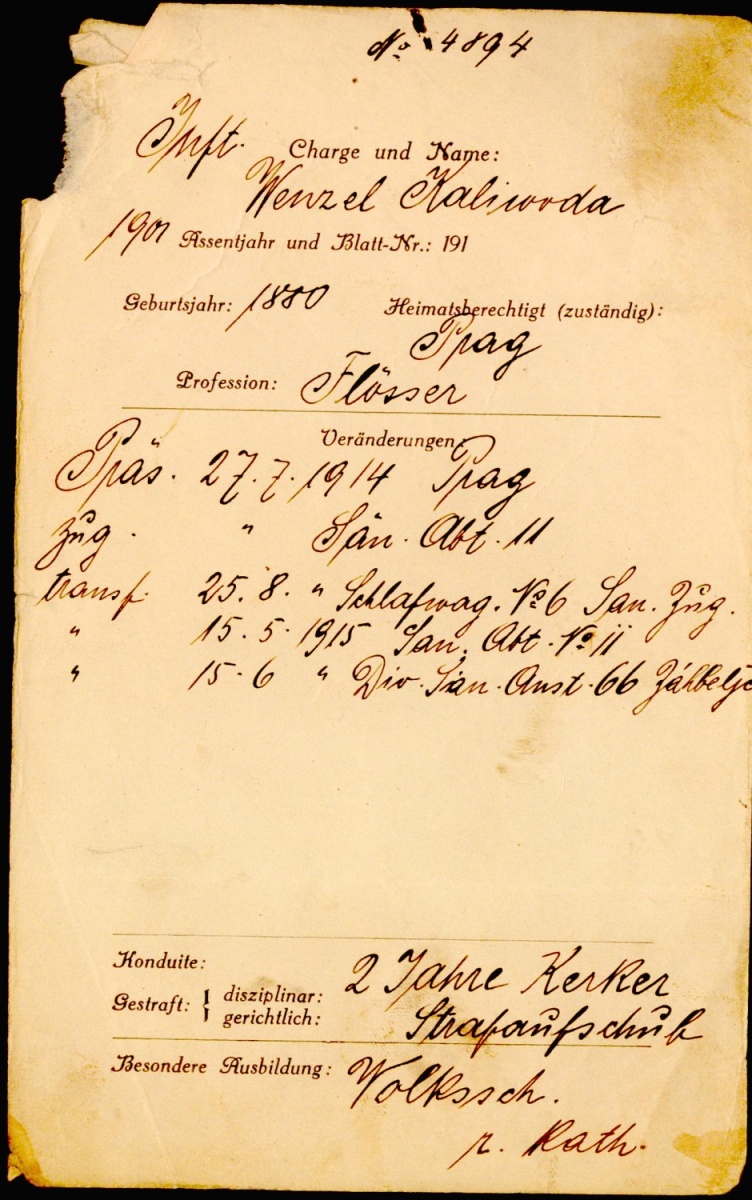 No 4894
Inft. Charge und Name:
Wenzel Kaliwoda
1901 Assentjahr und Blatt-Nr.: 191
Geburtsjahr: 1880 Heimatsberechtigt (zuständig):
Prag
Profession: Flösser
Veränderungen:
Präs. 27.7.1914 Prag
zug. " Sän. Abt. 11
transf. 25.8. " Schlafwag. No 6 San. Zug.
" 15.5.1915 San. Abt. No 11
" 15.6 " Div. San. Anst. 66
Konduite:
2 Jahre Kerker
Gestraft: { disziplinar:
gerichtlich:
Strafaufschub
Besondere Ausbildung: Volkssch.
r. Kath.